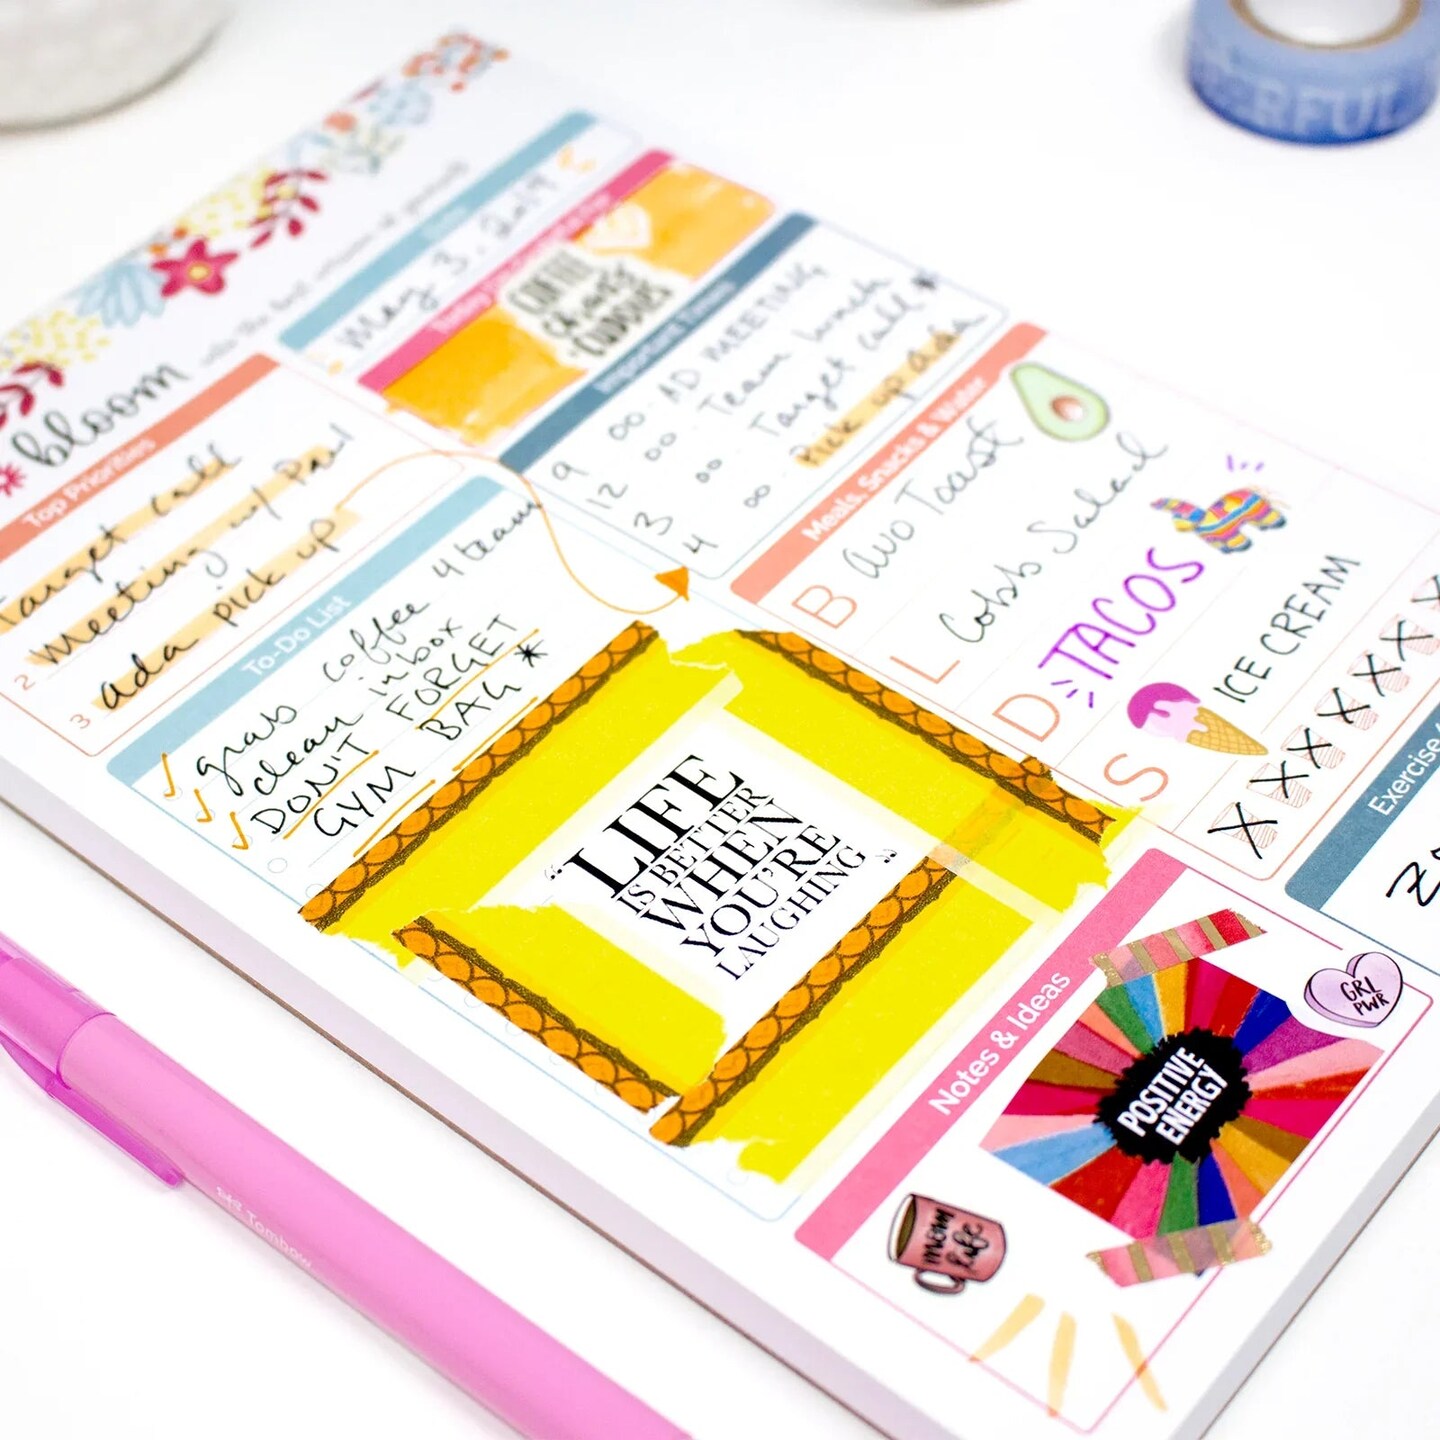 bloom
into the best version of yourself
Date
May 3, 2019
COFFEE
Important Times
9 00 - AD MEETING
12 00 - Team lunch
3 00 Target call *
4 00 Pick up ada
Top Priorities
Target call
2 Meeting w/
3 ada pick up
To-Do List
grab coffee 4 team
clean inbox
DON'T FORGET
GYM BAG *
Meals, Snacks & Water
B avo Toast
L Cobb Salad
D TACOS
S ICE CREAM
X X X X X X X
Exercise
"LIFE
IS BETTER
WHEN
YOU'RE
LAUGHING"
Notes & Ideas
POSITIVE
ENERGY
GRL
PWR
mom
life
Tombow
ERFUL